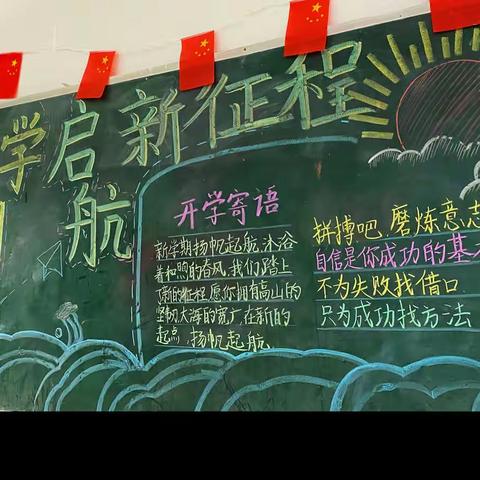 学启航
新征程
开学寄语
新学期扬帆起航,沐浴
着和煦的春风,我们踏上
了新的征程,愿你拥有高山的
坚帆,大海的宽广,在新的
起点,扬帆起航
拼搏吧,磨炼意志
自信是你成功的基
不为失败找借口
只为成功找方法